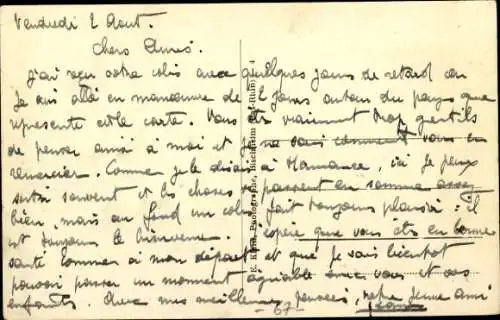 Vendredi 2 Aout.
Chers Amis.
J'ai reçu votre colis avec quelques jours de retard car
Je suis allé en manoeuvre de 2 jours autour du pays que
represente cette carte. Vous êtes vraiment trop gentils
de penser ainsi à moi et je ne sais comment vous en
remercier. Comme je le disais à Mamance, ici je peux
sortir souvent et les choses se passent en somme assez
bien, mais au fond un colis fait toujours plaisir: il
est toujours le bienvenu. J'espère que vous êtes en bonne
santé comme à mon départ et que je vais bientôt
pouvoir passer un moment agréable avec vous et vos
enfants. Avec mes meilleures pensées, votre jeune ami
67
Photographe,